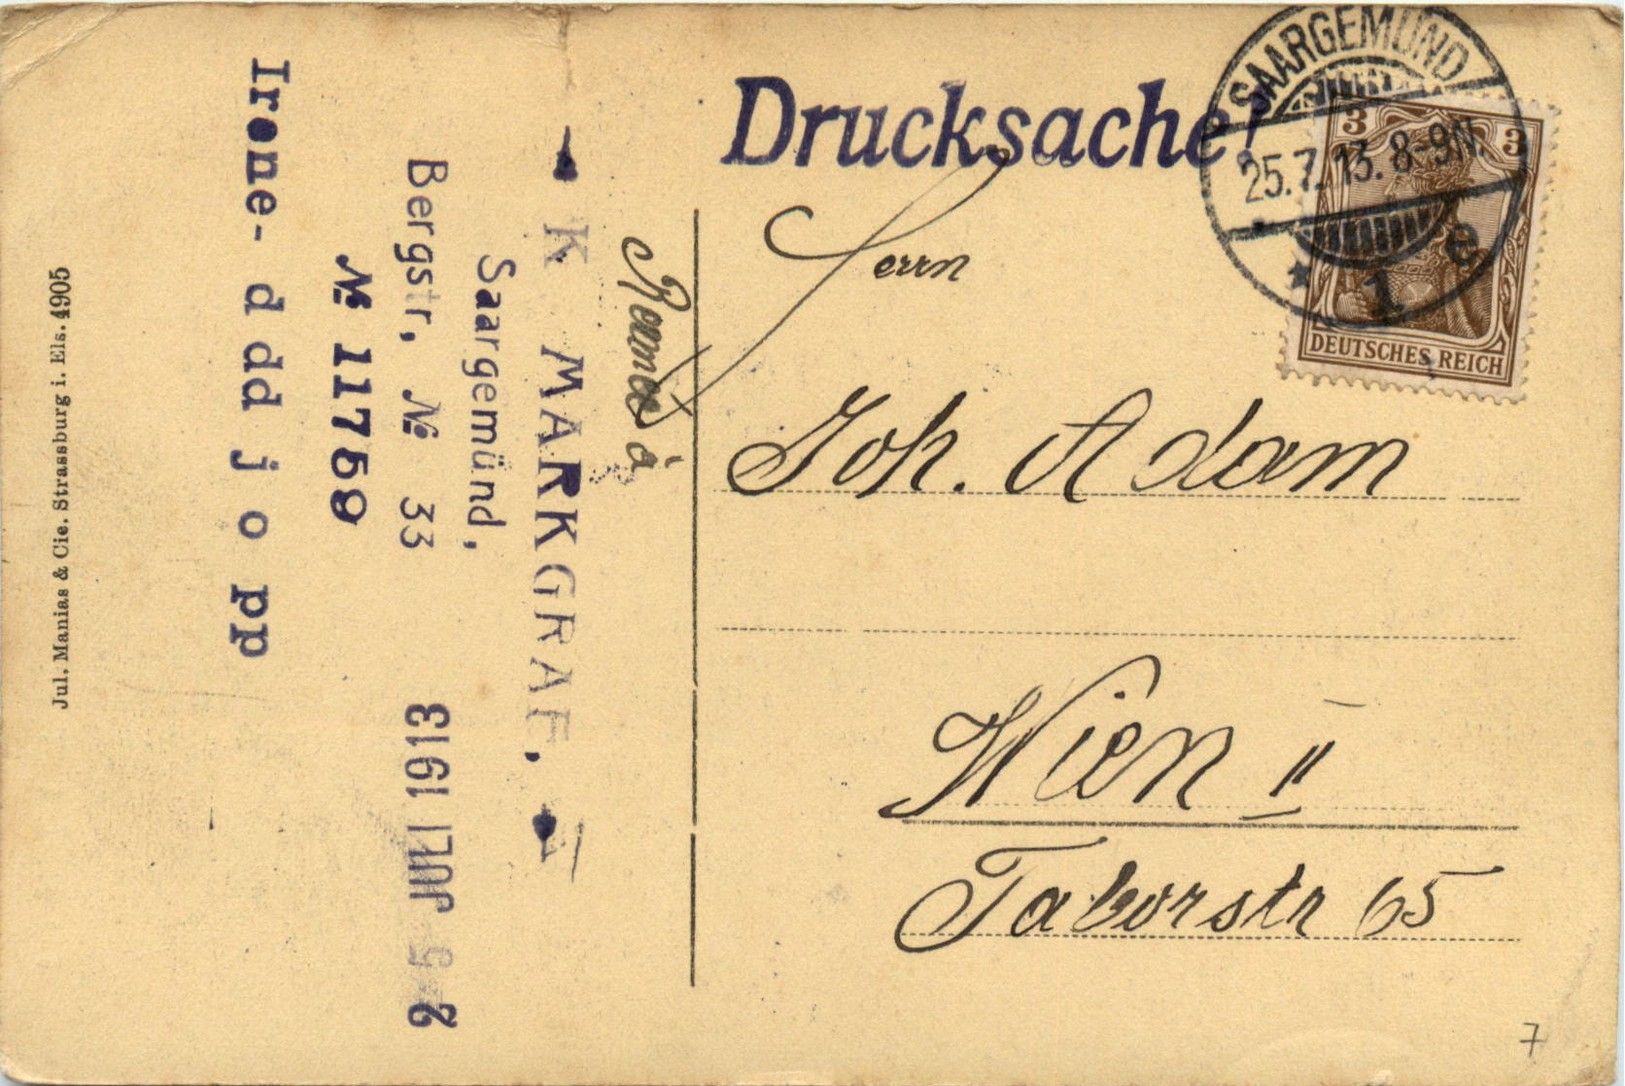 Drucksache!
SAARGEMÜND
25.7.13. 8-9N.
* 1 e
3 3
DEUTSCHES REICH
Herrn
Joh. Adam
Wien II
Taborstr 65
à
K MARKGRAF.
Saargemünd,
Bergstr, № 33
№ 11759
2 5 JUL 1913
Irene- d dd j o pp
Jul. Manias & Cie. Strassburg i. Els. 4905
7